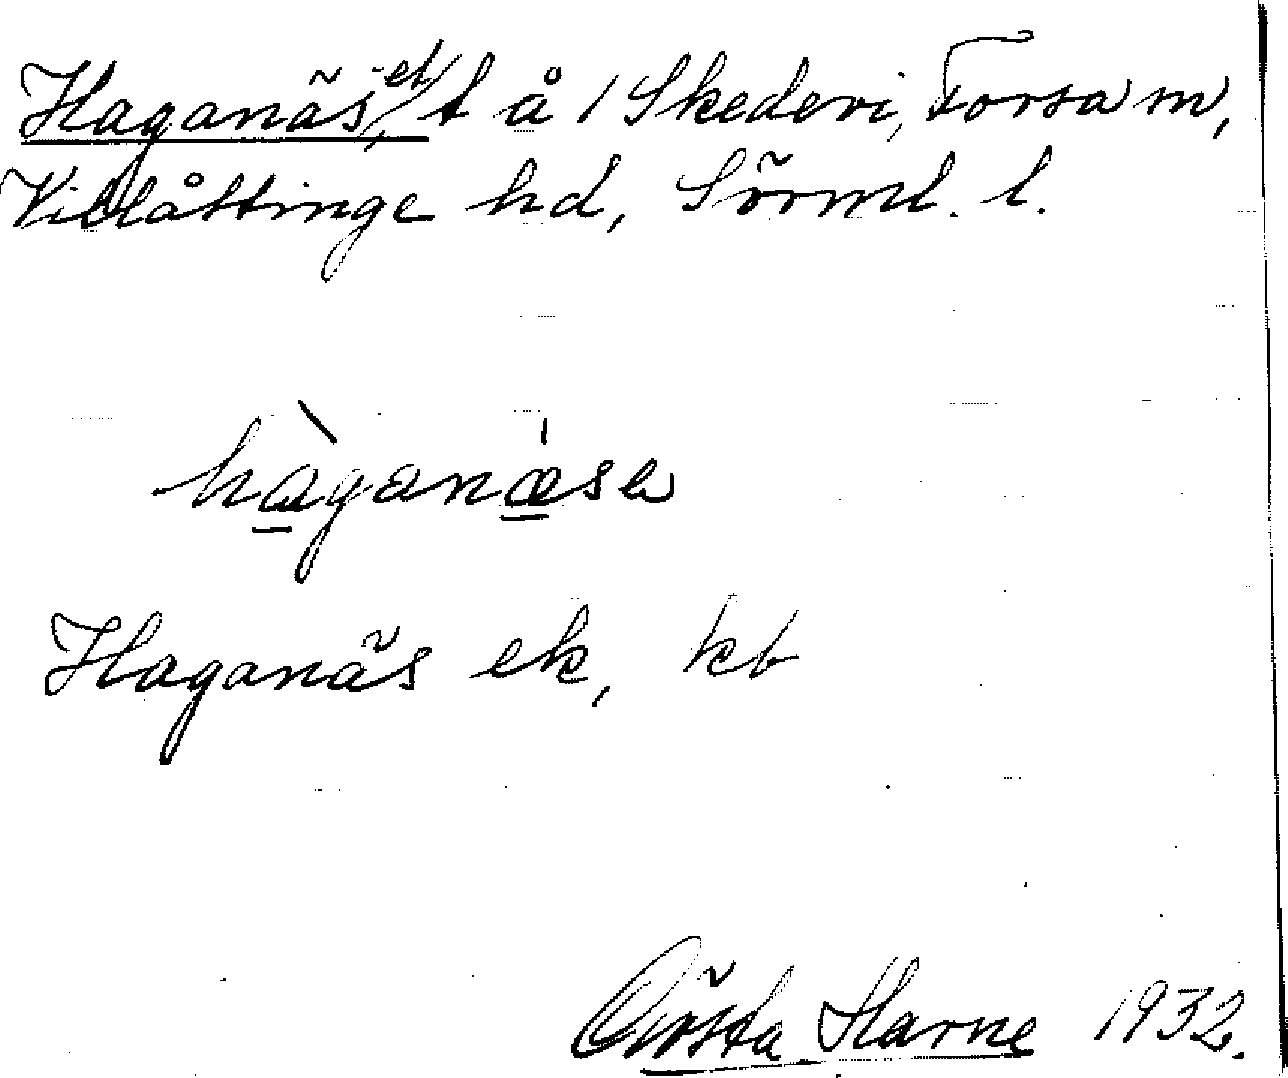 Haganäs, -et, t å / Skedevi, Forsa sn,
Villåttinge hd, Sörml. l.
hàganæse
Haganäs ek, kb
Gösta Harne 1932.